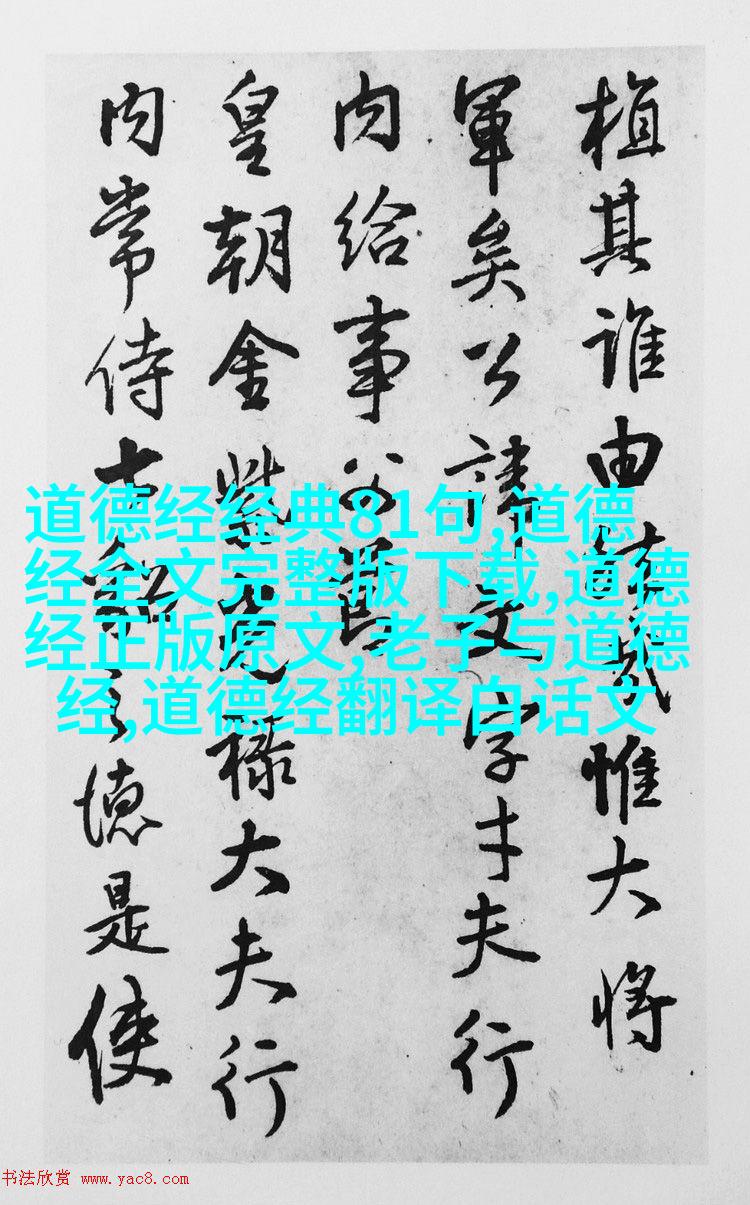 植其誰由哉惟大將
軍矣公諱文字才夫行
内給事
皇朝金紫光祿大夫行
内常侍之德是使
道德经经典81句,道德
经全文完整版下载,道德
经正版原文,老子与道德
经,道德经翻译白话文
书法欣赏 www.yac8.com